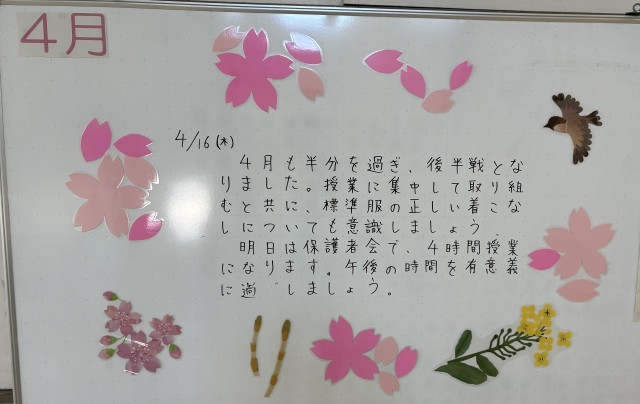 4月
4/16(木)
4月も半分を過ぎ、後半戦とな
りました。授業に集中して取り組
むと共に、標準服の正しい着こな
しについても意識しましょう。
明日は保護者会で、4時間授業
になります。午後の時間を有意義
に過 しましょう。